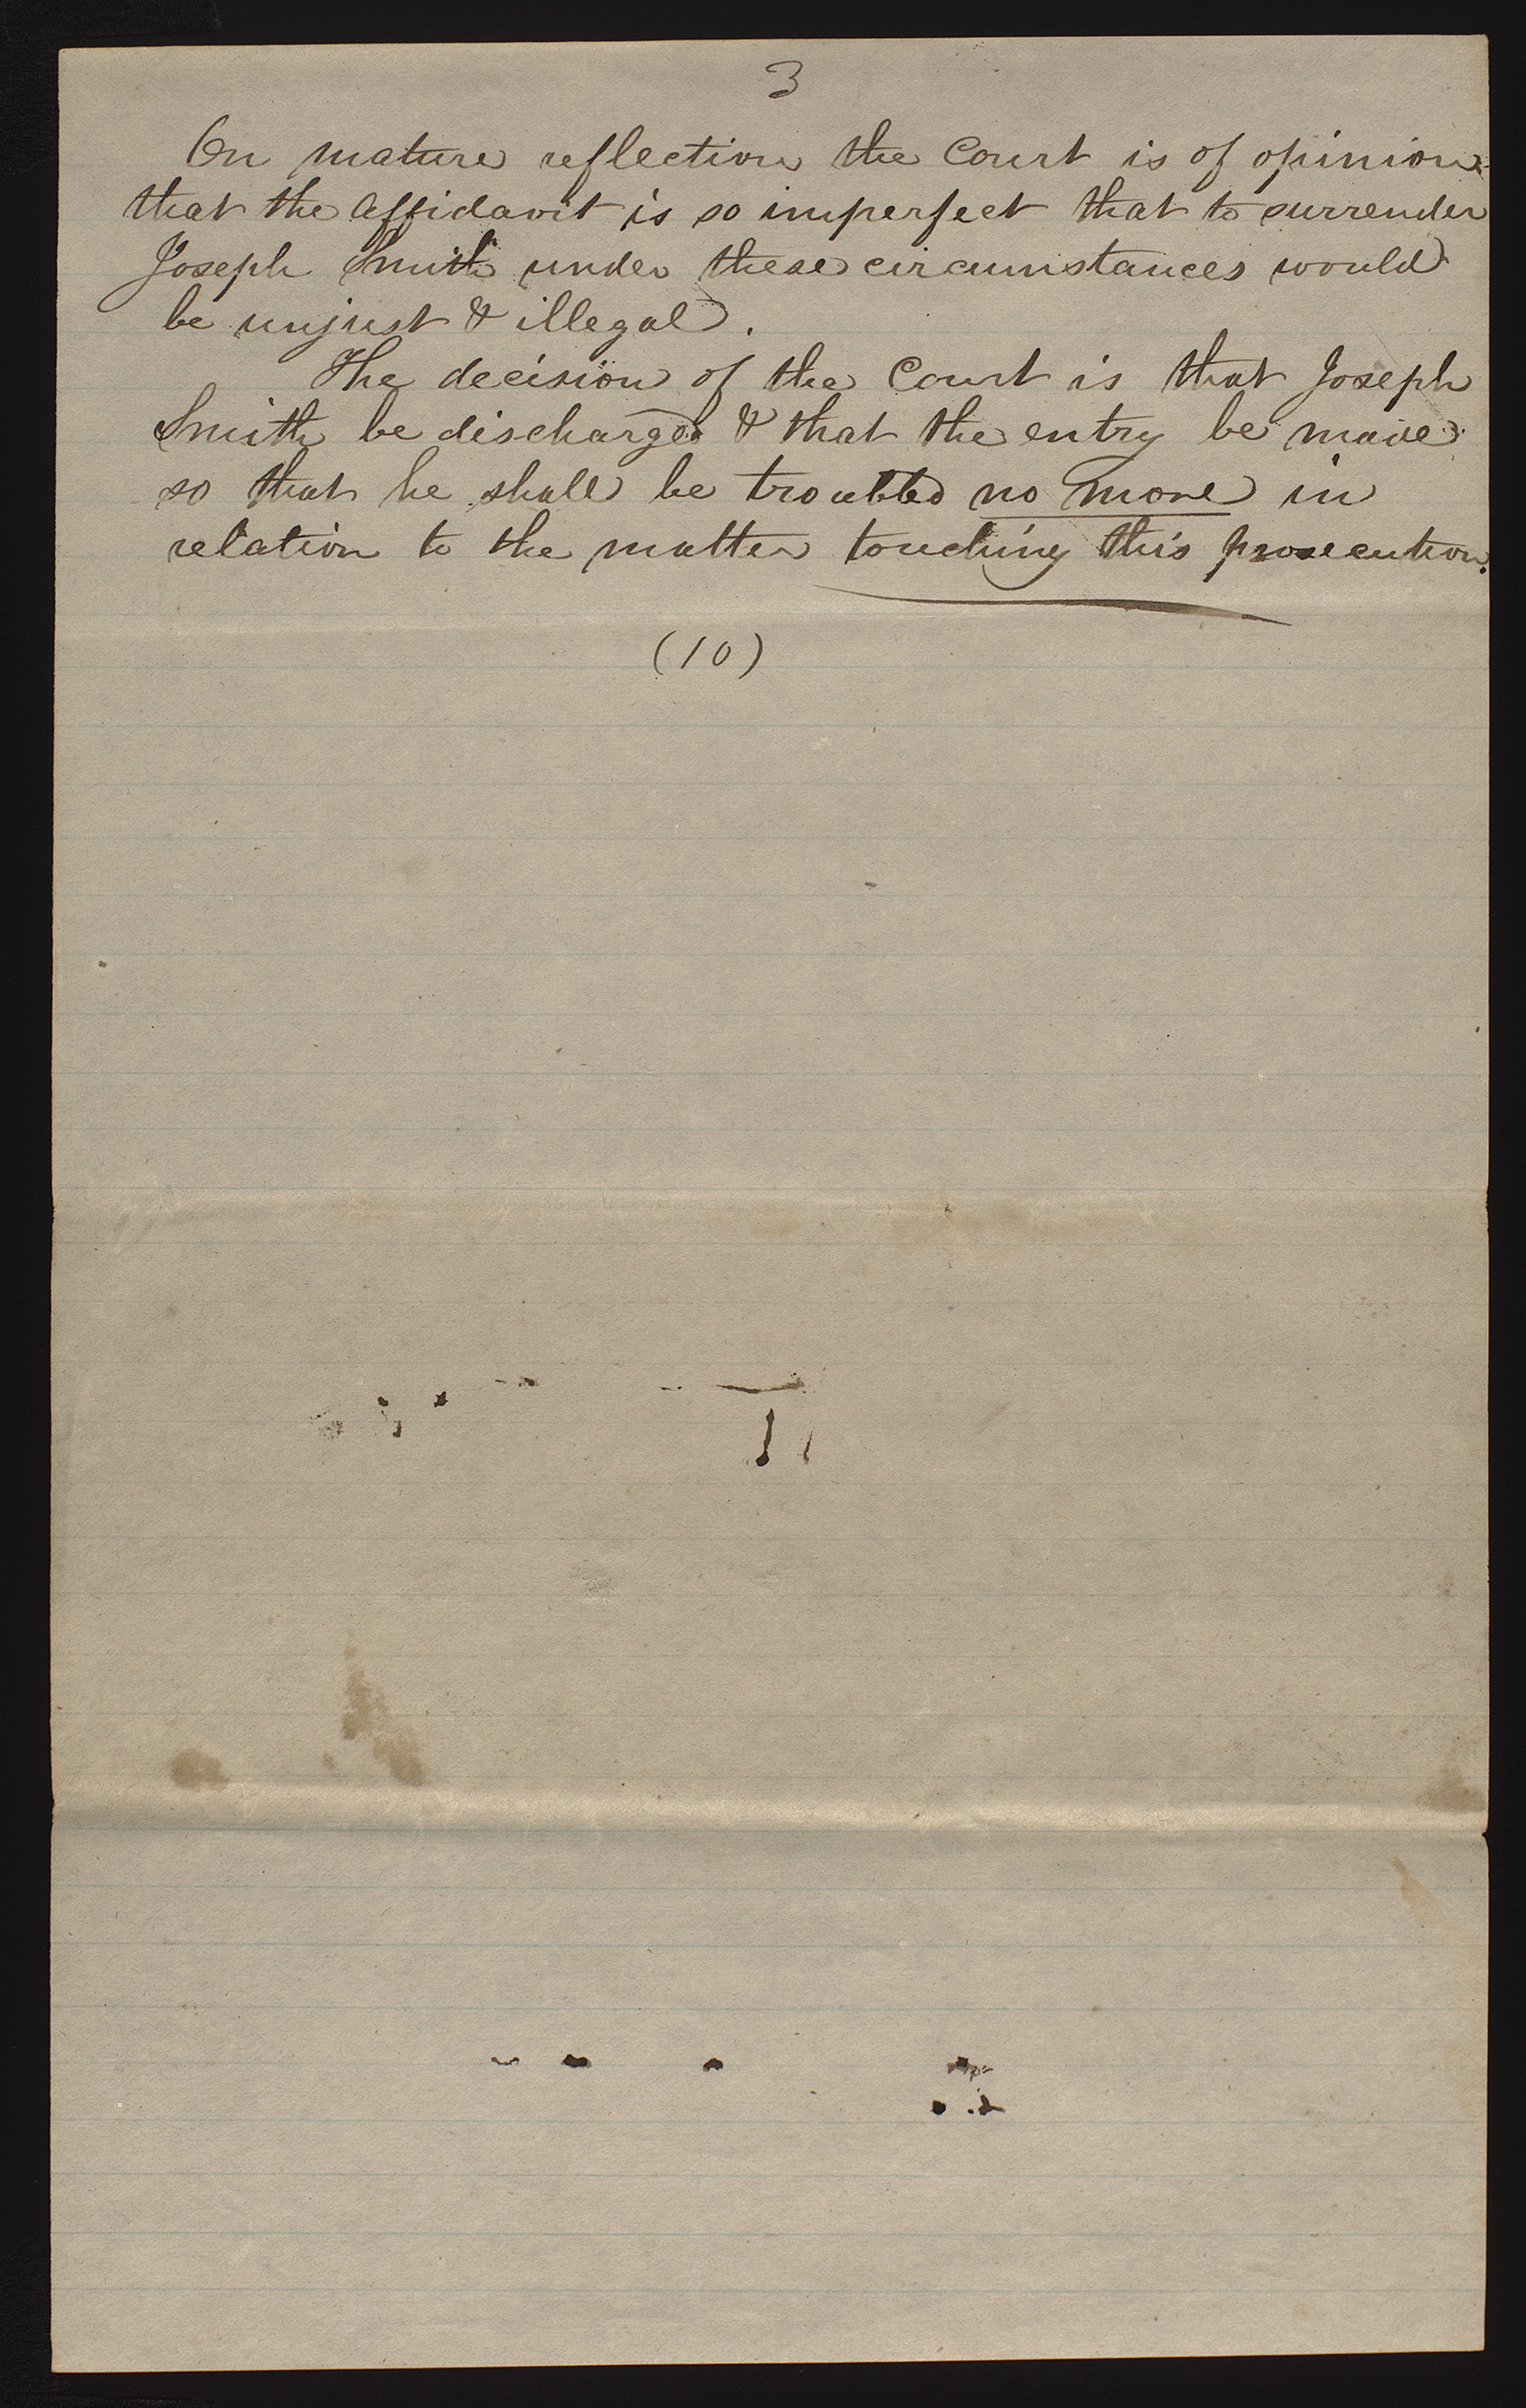 3
On mature reflection the Court is of opinion
that the affidavit is so imperfect that to surrender
Joseph Smith under these circumstances would
be unjust & illegal.
The decision of the Court is that Joseph
Smith be discharged & that the entry be made
so that he shall be troubled no more in
relation to the matter touching this prosecution.
(10)